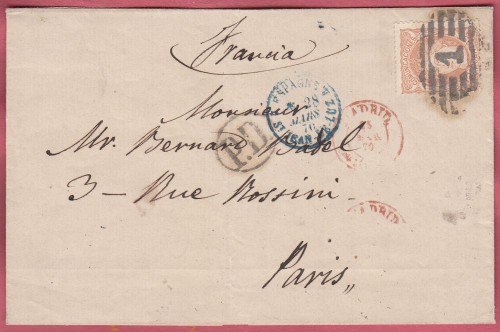 Francia
Monsieur
Mr. Bernard
3 - Rue Rossini
Paris
P.D.
ESPAGNE
28
MARS
70
ST JEAN-DE-LUZ
MADRID
70
MADRID
1